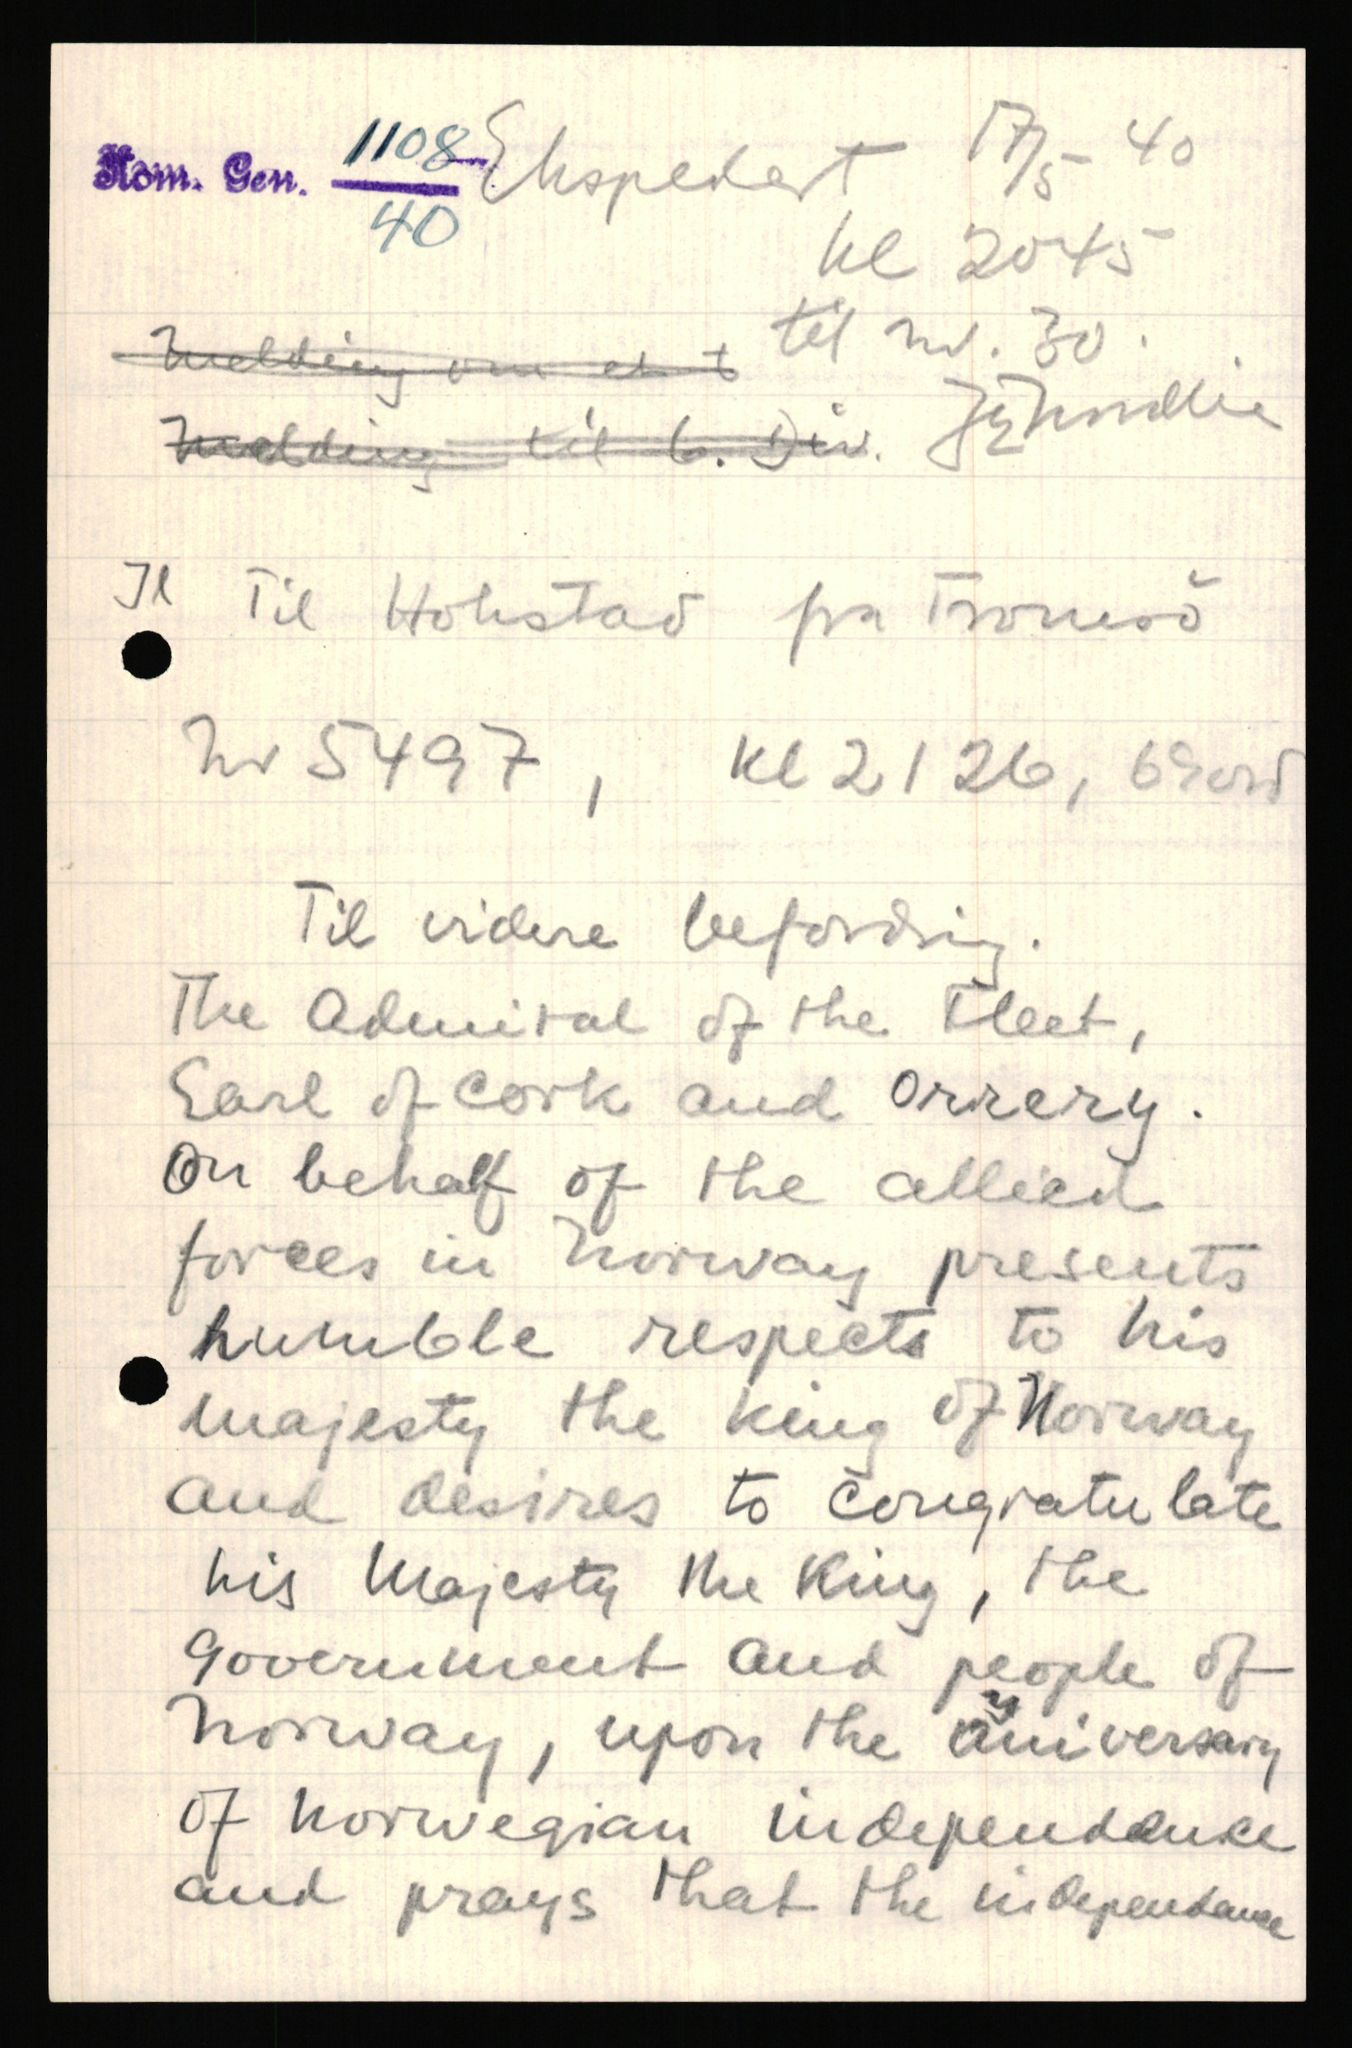 Kom. Gen. 1108
40
Ekspedert 17/5 40
kl 2045
til nr. 30.
Melding om at
Melding til 6. Div.
Il Til Holstad fra Tromsö
Nr 5497, kl 2126, 69 ord
Til videre befordring.
The Admiral of the Fleet,
Earl of Cork and Orrery.
On behalf of the allied
forces in Norway presents
humble respects to his
majesty the king of Norway
and desires to congratulate
his Majesty the King, the
Government and people of
Norway, upon the aniversary
of Norwegian independance
and prays that the independance